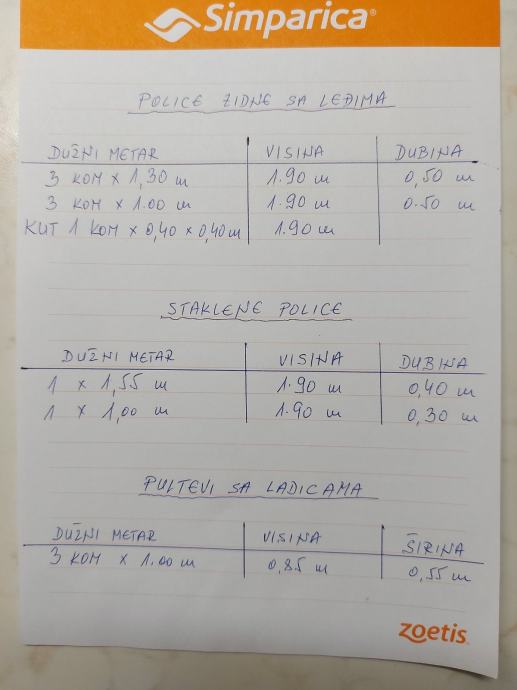 Simparica®
POLICE ZIDNE SA LEĐIMA
DUŽNI METAR VISINA DUBINA
3 KOM x 1,30 m 1.90 m 0,50 m
3 KOM x 1.00 m 1.90 m 0.50 m
KUT 1 KOM x 0,40 x 0,40 m 1.90 m
STAKLENE POLICE
DUŽNI METAR VISINA DUBINA
1 x 1,55 m 1.90 m 0,40 m
1 x 1,00 m 1.90 m 0,30 m
PULTEVI SA LADICAMA
DUŽNI METAR VISINA ŠIRINA
3 KOM x 1.00 m 0,85 m 0,55 m
zoetis